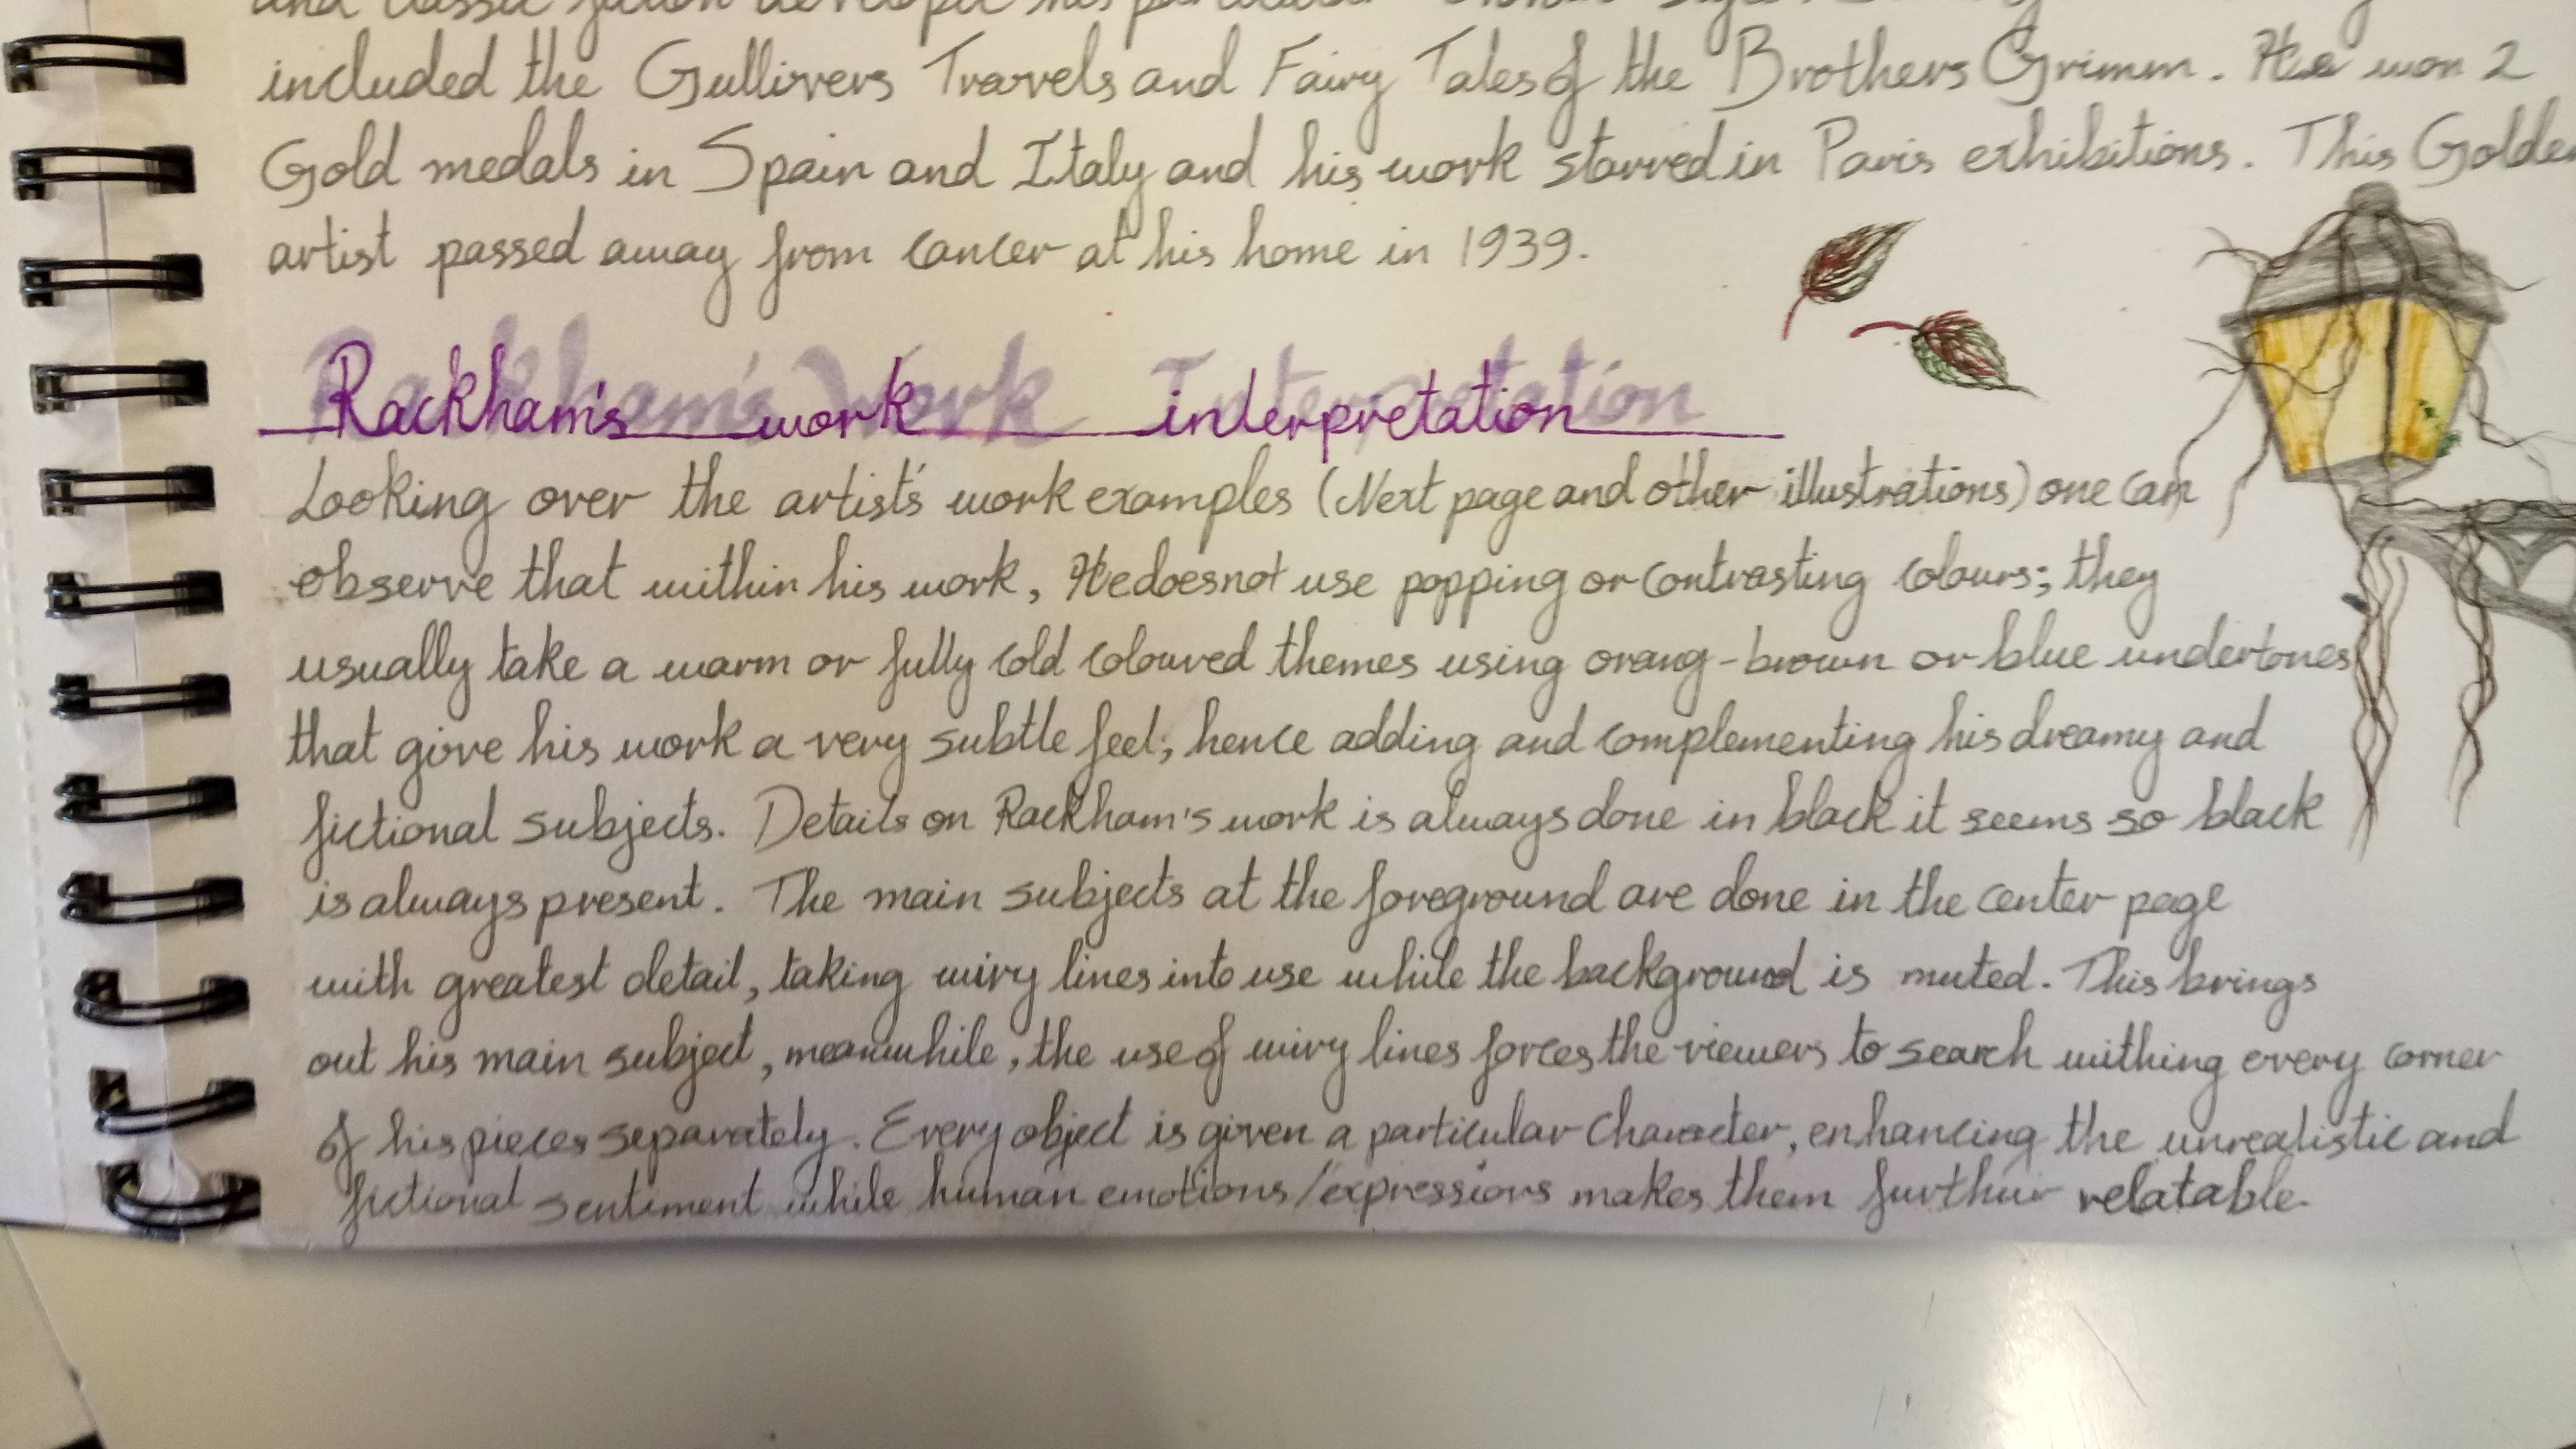 and classic fiction develope his
included the Gullivers Travels and Fairy Tales of the Brothers Grimm. He won 2
Gold medals in Spain and Italy and his work starred in Paris exhibitions. This Golden
artist passed away from cancer at his home in 1939.
Rackham's work interpretation
Looking over the artist's work examples (Next page and other illustrations) one can
observe that within his work, He does not use popping or contrasting colours; they
usually take a warm or fully cold coloured themes using orang-brown or blue undertones
that give his work a very subtle feel; hence adding and complementing his dreamy and
fictional subjects. Details on Rackham's work is always done in black it seems so black
is always present. The main subjects at the foreground are done in the center page
with greatest detail, taking wiry lines into use while the background is muted. This brings
out his main subject, meanwhile, the use of wiry lines forces the viewers to search withing every corner
of his pieces separately. Every object is given a particular character, enhancing the unrealistic and
fictional sentiment while human emotions/expressions makes them furthur relatable.